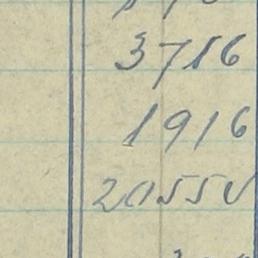 3716
1916
20550